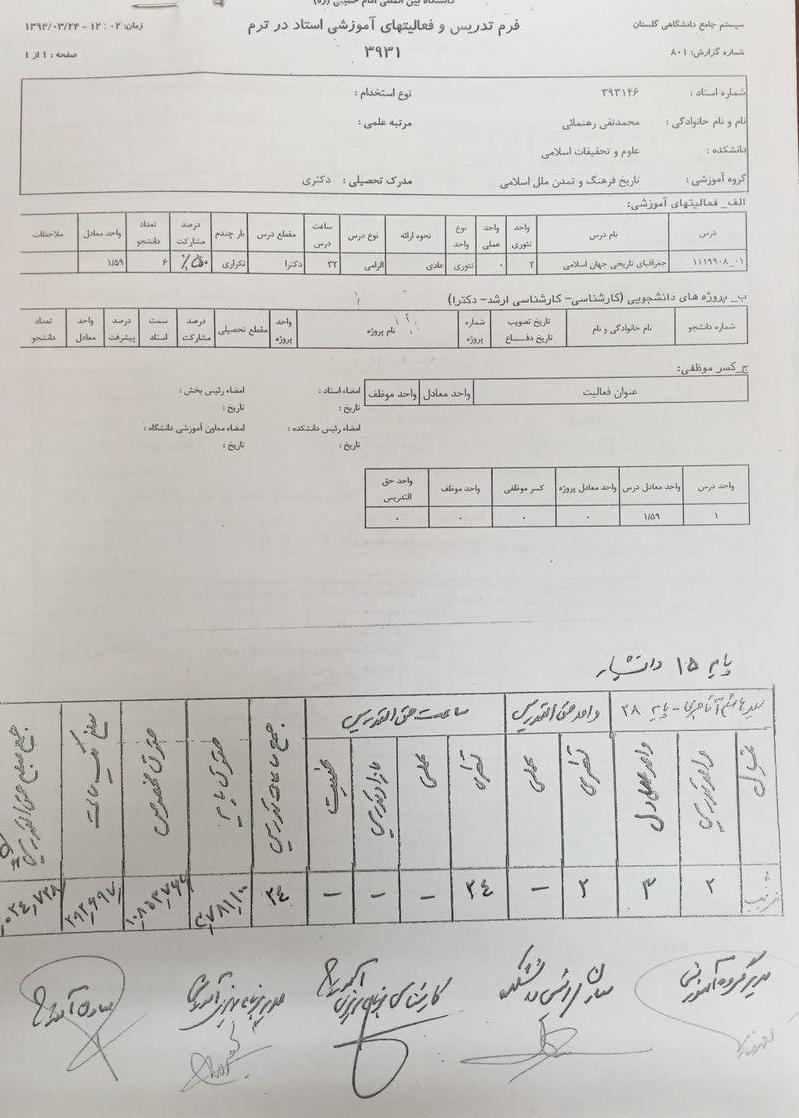 دانشگاه بین المللی امام خمینی (ره)
سیستم جامع دانشگاهی گلستان
فرم تدریس و فعالیتهای آموزشی استاد در ترم
زمان: ۰۲ : ۱۲ - ۱۳۹۴/۰۳/۲۴
شماره گزارش: ۸۰۱
۳۹۳۱
صفحه : ۱ از ۱
شماره استاد : ۳۹۳۱۴۶ نوع استخدام :
نام و نام خانوادگی : محمدتقی رهنمائی مرتبه علمی :
دانشکده : علوم و تحقیقات اسلامی
گروه آموزشی : تاریخ فرهنگ و تمدن ملل اسلامی مدرک تحصیلی : دکتری
الف_ فعالیتهای آموزشی:
درس نام درس واحد تئوری واحد عملی نوع واحد نحوه ارائه نوع درس ساعت درس مقطع درس بار چندم درصد مشارکت تعداد دانشجو واحد معادل ملاحظات
۱۱۱۹۹۰۸_۰۱ جغرافیای تاریخی جهان اسلامی ۲ ۰ تئوری عادی الزامی ۳۲ دکترا تکراری ٪۵۰ ۶ ۱/۵۹
ب_ پروژه های دانشجویی (کارشناسی- کارشناسی ارشد- دکترا)
شماره دانشجو نام خانوادگی و نام تاریخ تصویب تاریخ دفـــاع شماره پروژه نام پروژه واحد پروژه مقطع تحصیلی درصد مشارکت سمت استاد درصد پیشرفت واحد معادل تعداد دانشجو
ج_کسر موظفی:
عنوان فعالیت واحد معادل واحد موظف
امضاء استاد : امضاء رئیس بخش :
تاریخ : تاریخ :
امضاء رئیس دانشکده : امضاء معاون آموزشی دانشگاه :
تاریخ : تاریخ :
واحد درس واحد معادل درس واحد معادل پروژه کسر موظفی واحد موظف واحد حق التدریس
۱ ۱/۵۹ ۰ ۰ ۰ ۰
پایه ۱۵ دانشیار
پایه ۳۸ واحد حق التدریس ساعت حق التدریس
واحد تدریس واحد معادل نظری عملی نظری عملی مازاد تدریس جمع ساعات تدریس حقوق پایه مبلغ یک ساعت جمع مبلغ حق التدریس
۲ ۳ ۲ – ۳۴ – – – ۳۴
مدیر گروه آموزشی